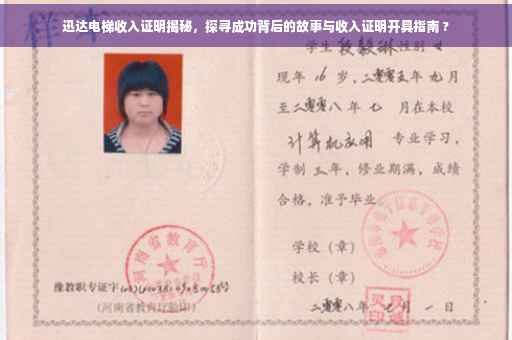 迅达电梯收入证明揭秘，探寻成功背后的故事与收入证明开具指南？
样本
学生 段毅琳 性别 女
现年 16 岁，二零零五年 九 月
至二零零八 年 七 月在本校
计算机应用 专业学习，
学制 三 年，修业期满，成绩
合格，准予毕业。
学校（章）
校长（章）
二零零八年 七 月 一 日
河南省教育厅
豫教职专证字
（河南省教育厅验印）